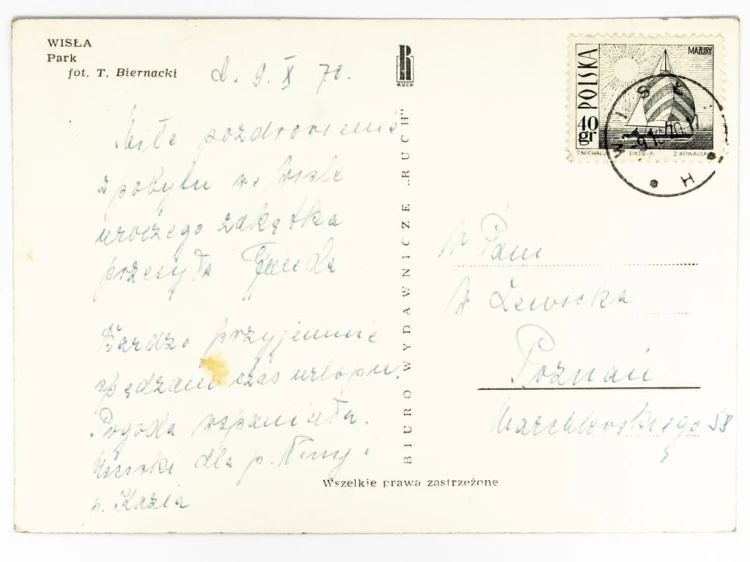 WISŁA
Park
fot. T. Biernacki
d. 9. X 70.
RUCH
Miłe pozdrowienia
z pobytu w Wiśle
uroczego zakątka
przesyła
Bardzo przyjemnie
spędzam czas urlopu.
Pogoda wspaniała.
dla p. i
p. Kazia
BIURO WYDAWNICZE „RUCH”
Wszelkie prawa zastrzeżone
POLSKA
MAZURY
40 gr
WISŁA
W Pani
W Lewicka
Poznań
Marchlewskiego 58